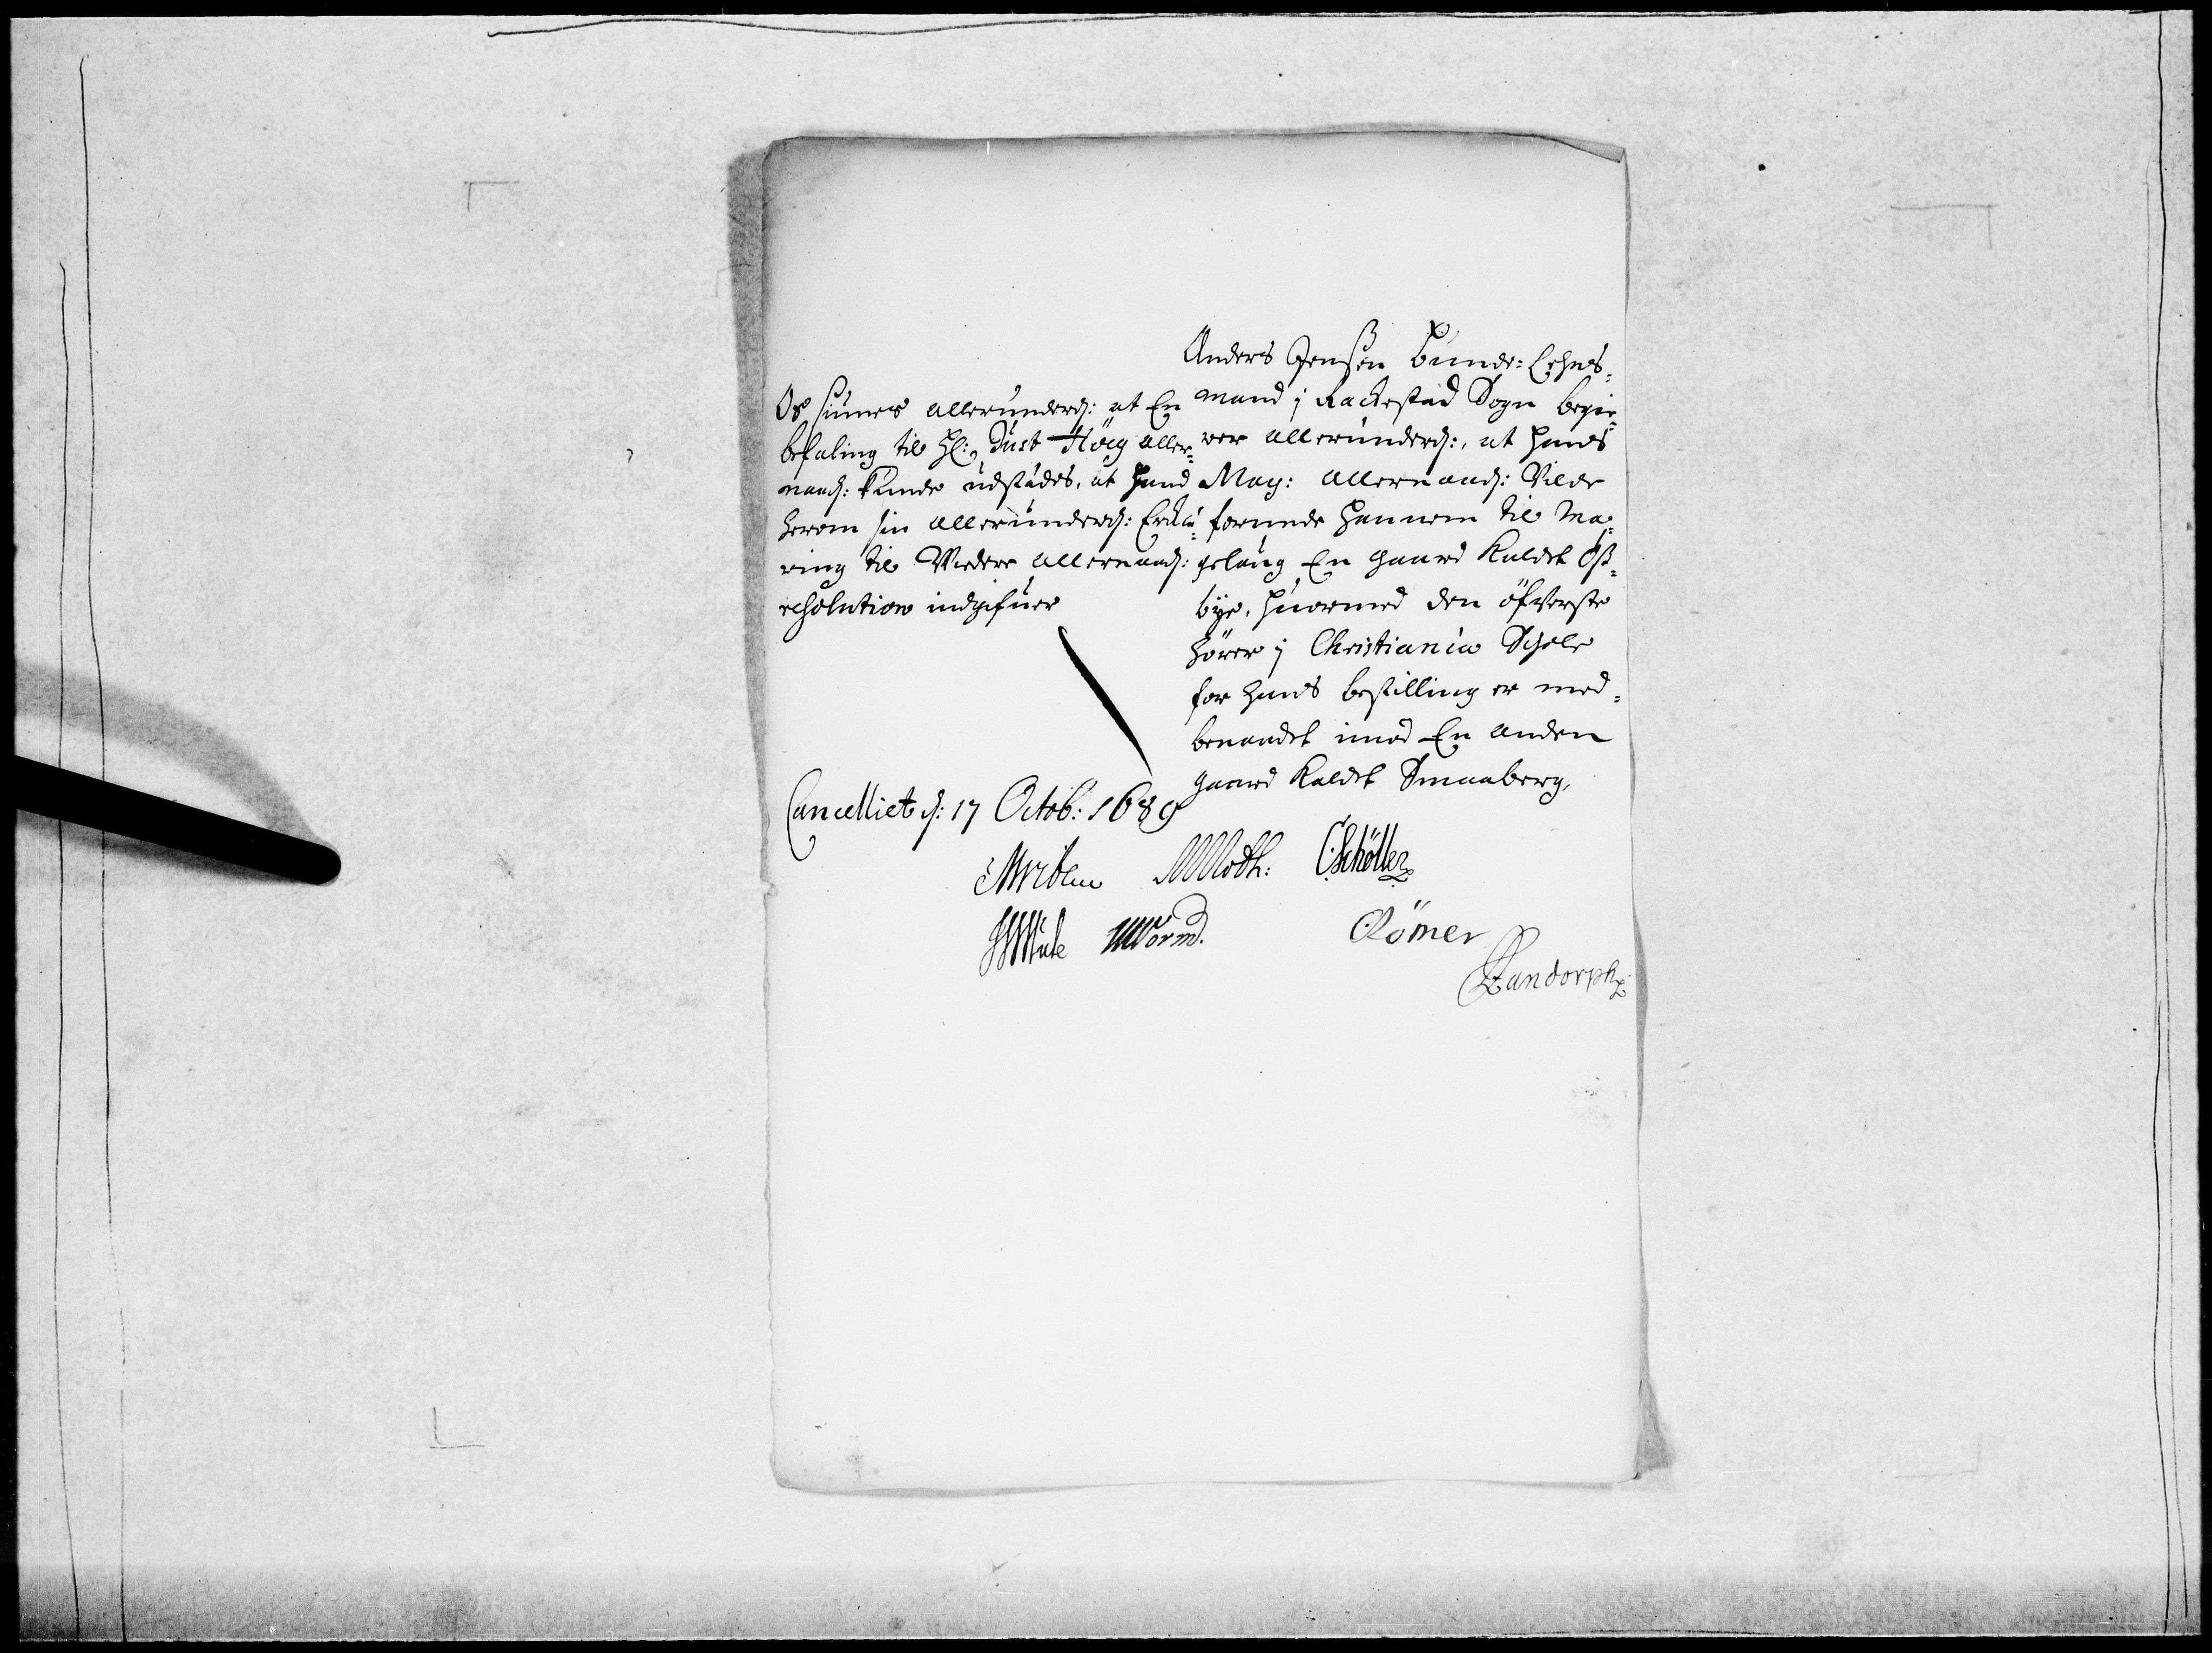 Anders Jenßen Bunde-Lehns-
mand j Rackestad Sogn begie-
rer allerunderd:, at Hands
May: allernaad: Vilde
forunde hannem til Ma-
gelaug En gaard Kaldet Oß-
bye, huormed den öfverste
Hörer j Christiania Schole
for hans bestilling er med-
benaadet imod En anden
gaard Kaldet Smaaberg,
Os siunes allerunderd: at En
befaling til Hl: Just Höeg aller-
naad: kunde udstædes, at Hand
herom sin allerunderd: Erklæ-
ring til Videre allernaad:
resolution indgifuer
Cancelliet d: 17 Octob: 1689
MVibeu MMoth: CSchöller
WWorm. ORömer
Randorph